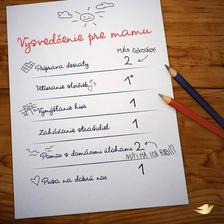 Vysvedčenie pre mamu
Príprava desiaty 2
Utieranie slzičiek 1*
Vymýšľanie hier 1
Zaháňanie strašidiel 1
Pomoc s domácimi úlohami 2
Pusa na dobrú noc 1